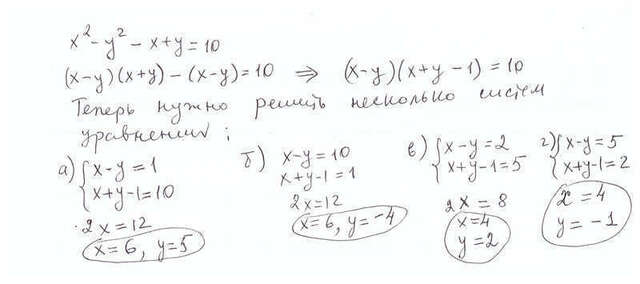 x² - y² - x + y = 10
(x-y)(x+y) - (x-y) = 10 ⇒ (x-y)(x+y-1) = 10
Теперь нужно решить несколько систем
уравнений;
а) {x-y=1
x+y-1=10
2x=12
x=6, y=5
б) x-y=10
x+y-1=1
2x=12
x=6, y=-4
в) {x-y=2
x+y-1=5
2x=8
x=4
y=2
г) {x-y=5
x+y-1=2
x=4
y=-1